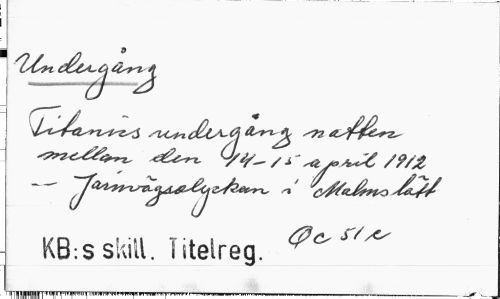 Undergång
Titanics undergång natten
mellan den 14-15 april 1912
-- Järnvägsolyckan i Malmslätt
Oc 51 c
KB:s skill. Titelreg.